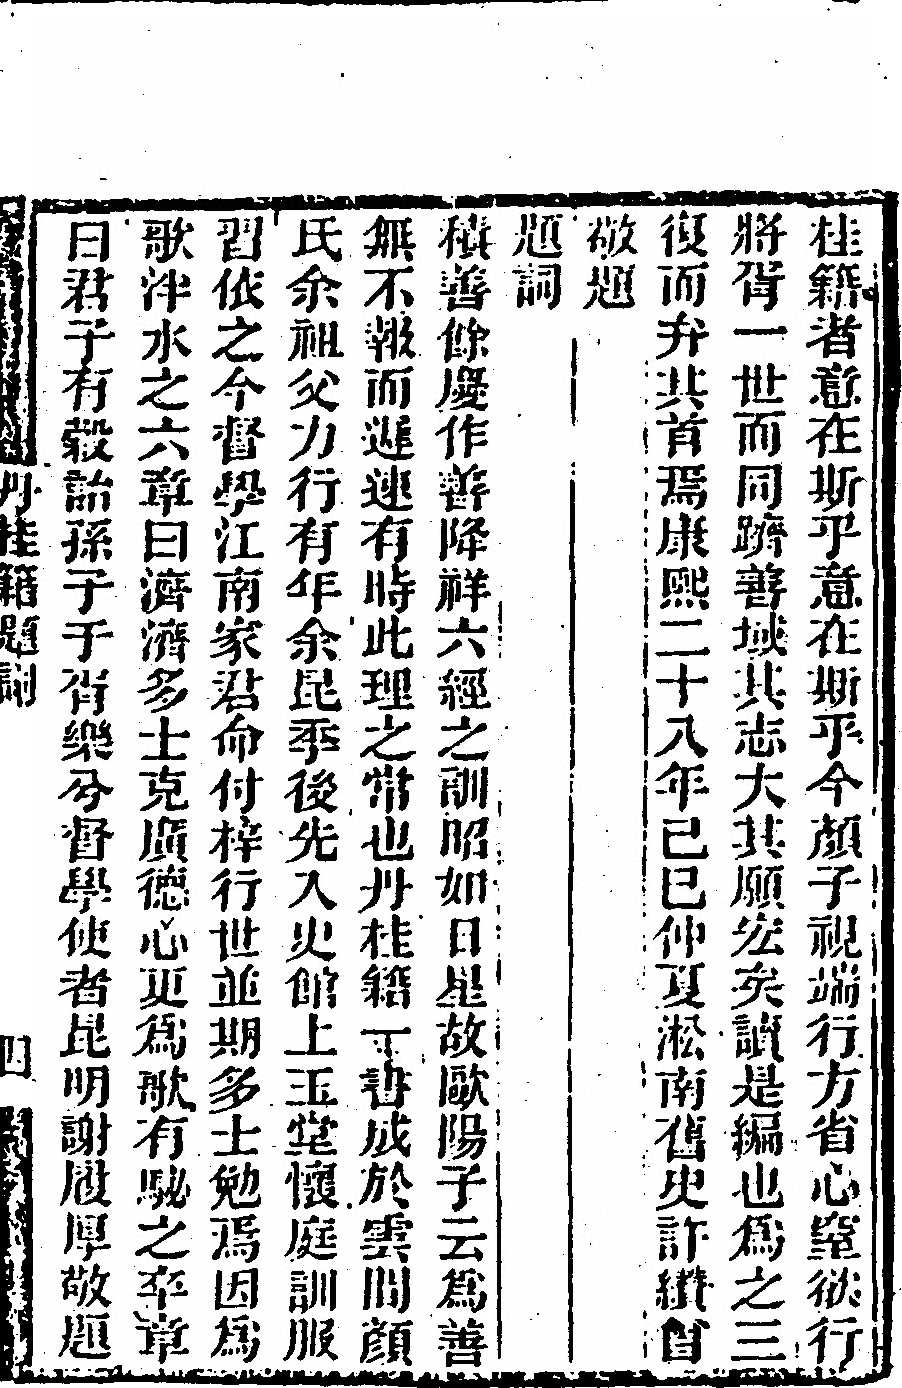 桂籍者意在斯乎意在斯乎今顏子視端行方省心窒欲行
將胥一世而同躋善域其志大其願宏矣讀是編也為之三
復而弁其首焉康熙二十八年己巳仲夏淞南舊史許纘曾
敬題
題詞
積善餘慶作善降祥六經之訓昭如日星故歐陽子云為善
無不報而遲速有時此理之常也丹桂籍一書成於雲間顏
氏余祖父力行有年余昆季後先入史館上玉堂懷庭訓服
習依之今督學江南家君命付梓行世並期多士勉焉因為
歌泮水之六章曰濟濟多士克廣德心更為歌有駜之卒章
曰君子有穀詒孫子于胥樂兮督學使者昆明謝履厚敬題
丹桂籍題詞
四